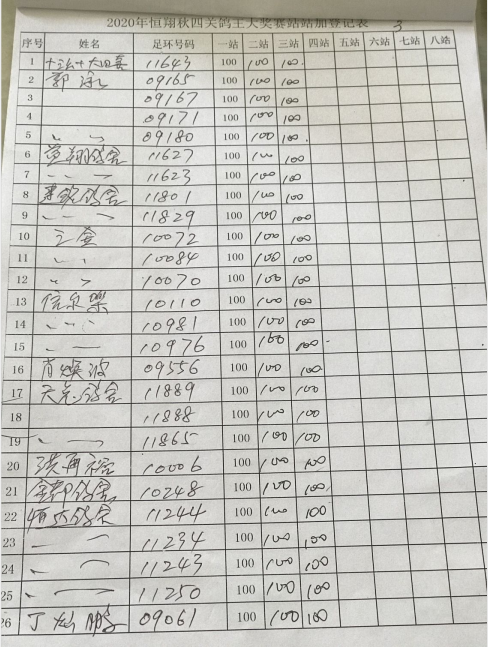 2020年恒翔秋四关鸽主大奖赛站站加登记表 3
序号 姓名 足环号码 一站 二站 三站 四站 五站 六站 七站 八站
1 11643 100 100 100
2 郭 09165 100 100 100
3 09167 100 100 100
4 09171 100 100 100
5 09180 100 100 100
6 鸽舍 11627 100 100 100
7 11623 100 100 100
8 鸽舍 11801 100 100 100
9 11829 100 100 100
10 10072 100 100 100
11 10084 100 100 100
12 10070 100 100 100
13 10110 100 100 100
14 10981 100 100 100
15 10976 100 100 100
16 肖焕波 09556 100 100 100
17 鸽舍 11889 100 100 100
18 11888 100 100 100
19 11865 100 100 100
20 洪再裕 10006 100 100 100
21 鸽舍 10248 100 100 100
22 11244 100 100 100
23 11234 100 100 100
24 11243 100 100 100
25 11250 100 100 100
26 丁 鹏 09061 100 100 100